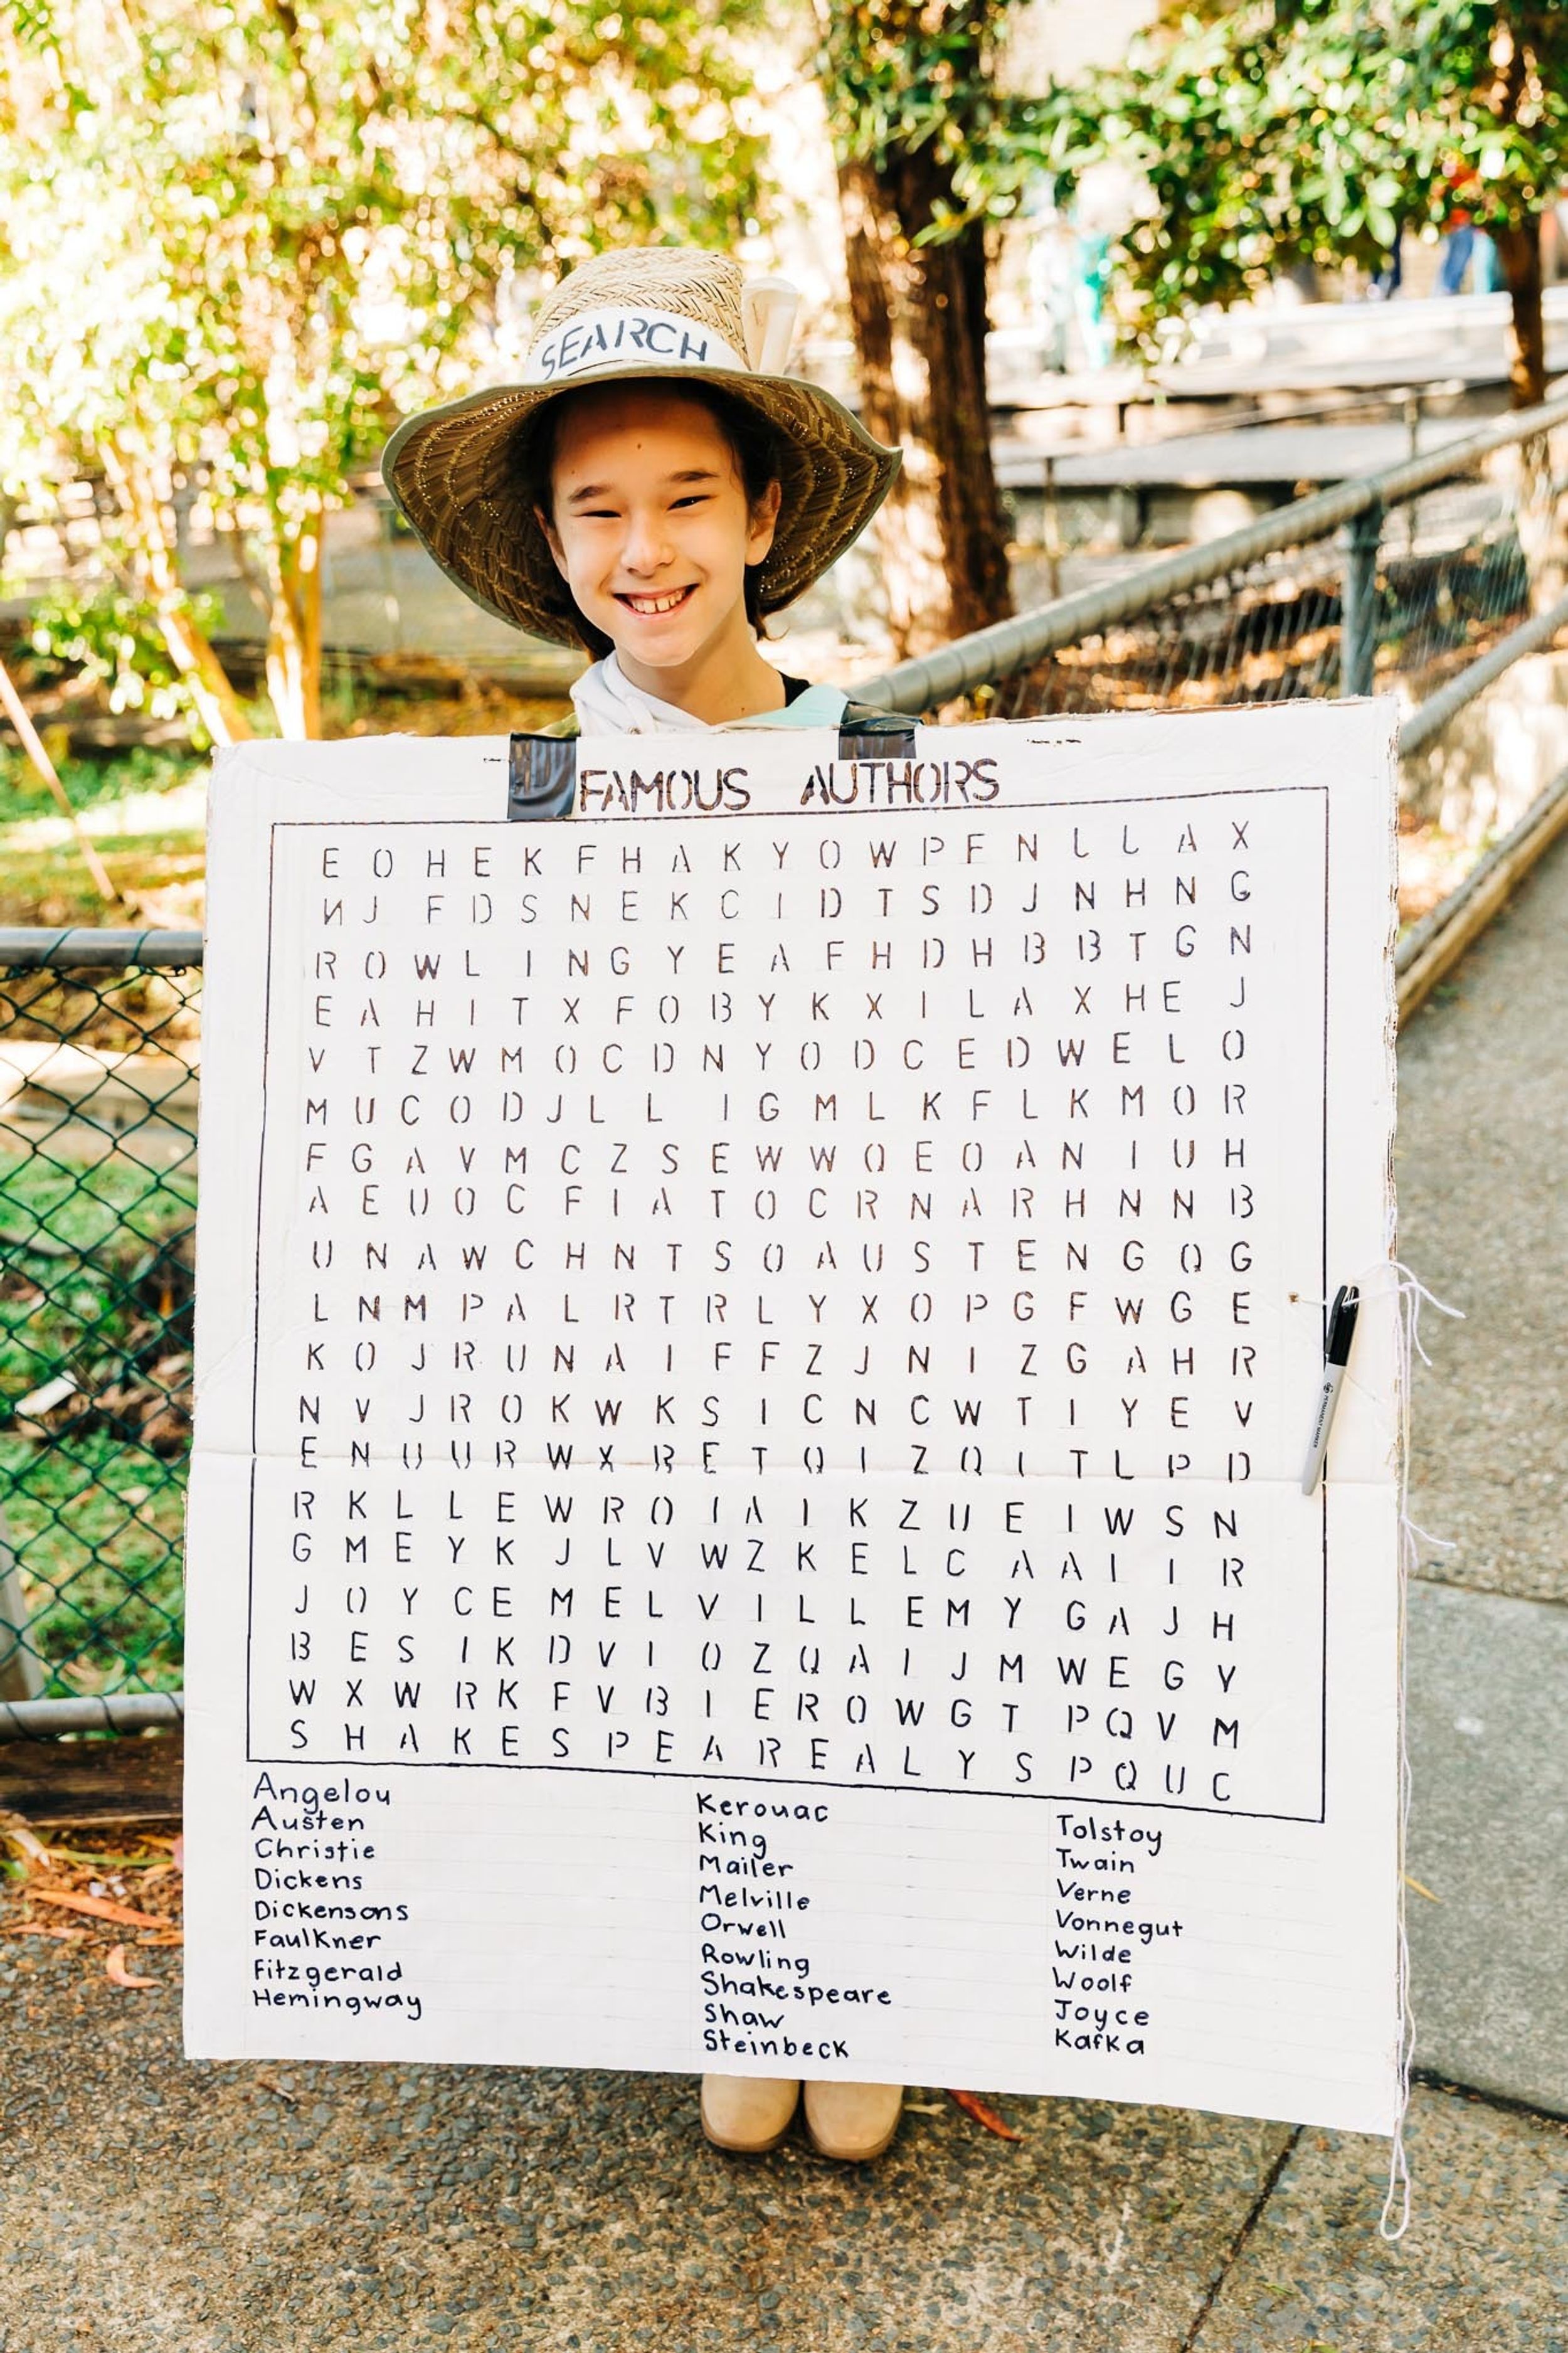 SEARCH
FAMOUS AUTHORS
E O H E K F H A K Y O W P F N L L A X
N J F D S N E K C I D T S D J N H N G
R O W L I N G Y E A F H D H B B T G N
E A H I T X F O B Y K X I L A X H E J
V T Z W M O C D N Y O D C E D W E L O
M U C O D J L L I G M L K F L K M O R
F G A V M C Z S E W W O E O A N I U H
A E U O C F I A T O C R N A R H N N B
U N A W C H N T S O A U S T E N G Q G
L N M P A L R T R L Y X O P G F W G E
K O J R U N A I F F Z J N I Z G A H R
N V J R O K W K S I C N C W T I Y E V
E N U U R W X R E T Q I Z Q I T L P D
R K L L E W R O I A I K Z U E I W S N
G M E Y K J L V W Z K E L C A A I I R
J O Y C E M E L V I L L E M Y G A J H
B E S I K D V I O Z Q A I J M W E G Y
W X W R K F V B I E R O W G T P Q V M
S H A K E S P E A R E A L Y S P Q U C
Angelou
Austen
Christie
Dickens
Dickensons
Faulkner
Fitzgerald
Hemingway
Kerouac
King
Mailer
Melville
Orwell
Rowling
Shakespeare
Shaw
Steinbeck
Tolstoy
Twain
Verne
Vonnegut
Wilde
Woolf
Joyce
Kafka